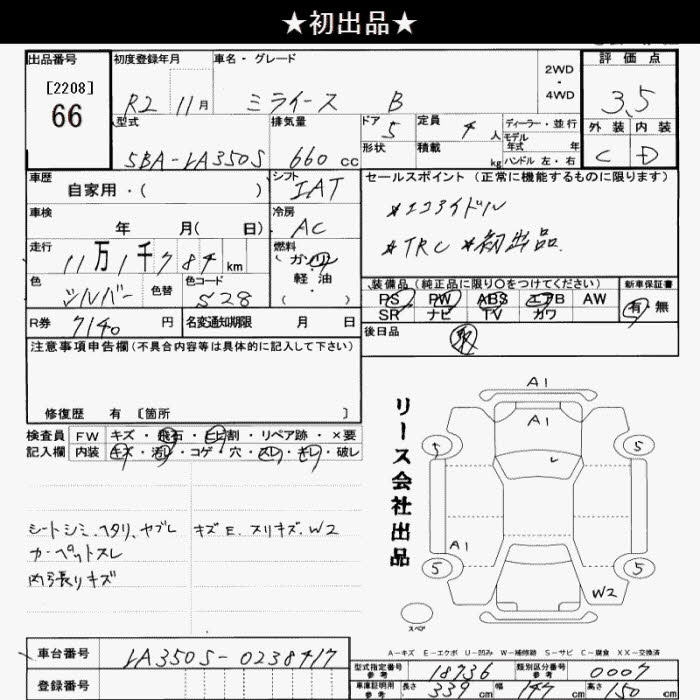 ★初出品★
出品番号
[2208]
66
初度登録年月
R2 11月
車名・グレード
ミライース B
2WD
・
4WD
評価点
3.5
型式
5BA-LA350S
排気量
660 cc
ドア
5
形状
定員
4 人
積載
kg
ディーラー・並行
モデル
年式 年
ハンドル 左・右
外装 内装
C D
車歴
自家用・( )
シフト
IAT
セールスポイント (正常に機能するものに限ります)
*エコアイドル
*TRC *初出品.
車検
年 月( 日)
冷房
AC
走行
11万1千784km
燃料
ガソリン
軽油
・
( )
色
シルバー
色替
色コード
S28
装備品 (純正品に限り○をつけてください)
PS PW ABS エアB AW
SR ナビ TV カワ
新車保証書
有 無
R券
7140 円
名変通知期限 月 日
後日品
取
注意事項申告欄(不具合内容等は具体的に記入して下さい)
修復歴 有 〔箇所 〕
検査員
記入欄
FW キズ・飛石・ヒビ割・リペア跡・×要
内装 キズ・汚れ・コゲ・穴・スレ・キレ・破レ
シートシミ.ヘタリ、ヤブレ
カーペットスレ
内張りキズ
キズE.スリキズ.W2
リース会社出品
A1
A1
5
5
A1
5
5
W2
スペア
A-キズ E-エクボ U-凹み W-補修跡 S-サビ C-腐食 XX-交換済
車台番号
LA350S-0238417
登録番号
型式指定番号
参考
18736
類別区分番号
参考
0007
車庫証明用
参考
長さ 339 cm 幅 147 cm 高さ 150 cm